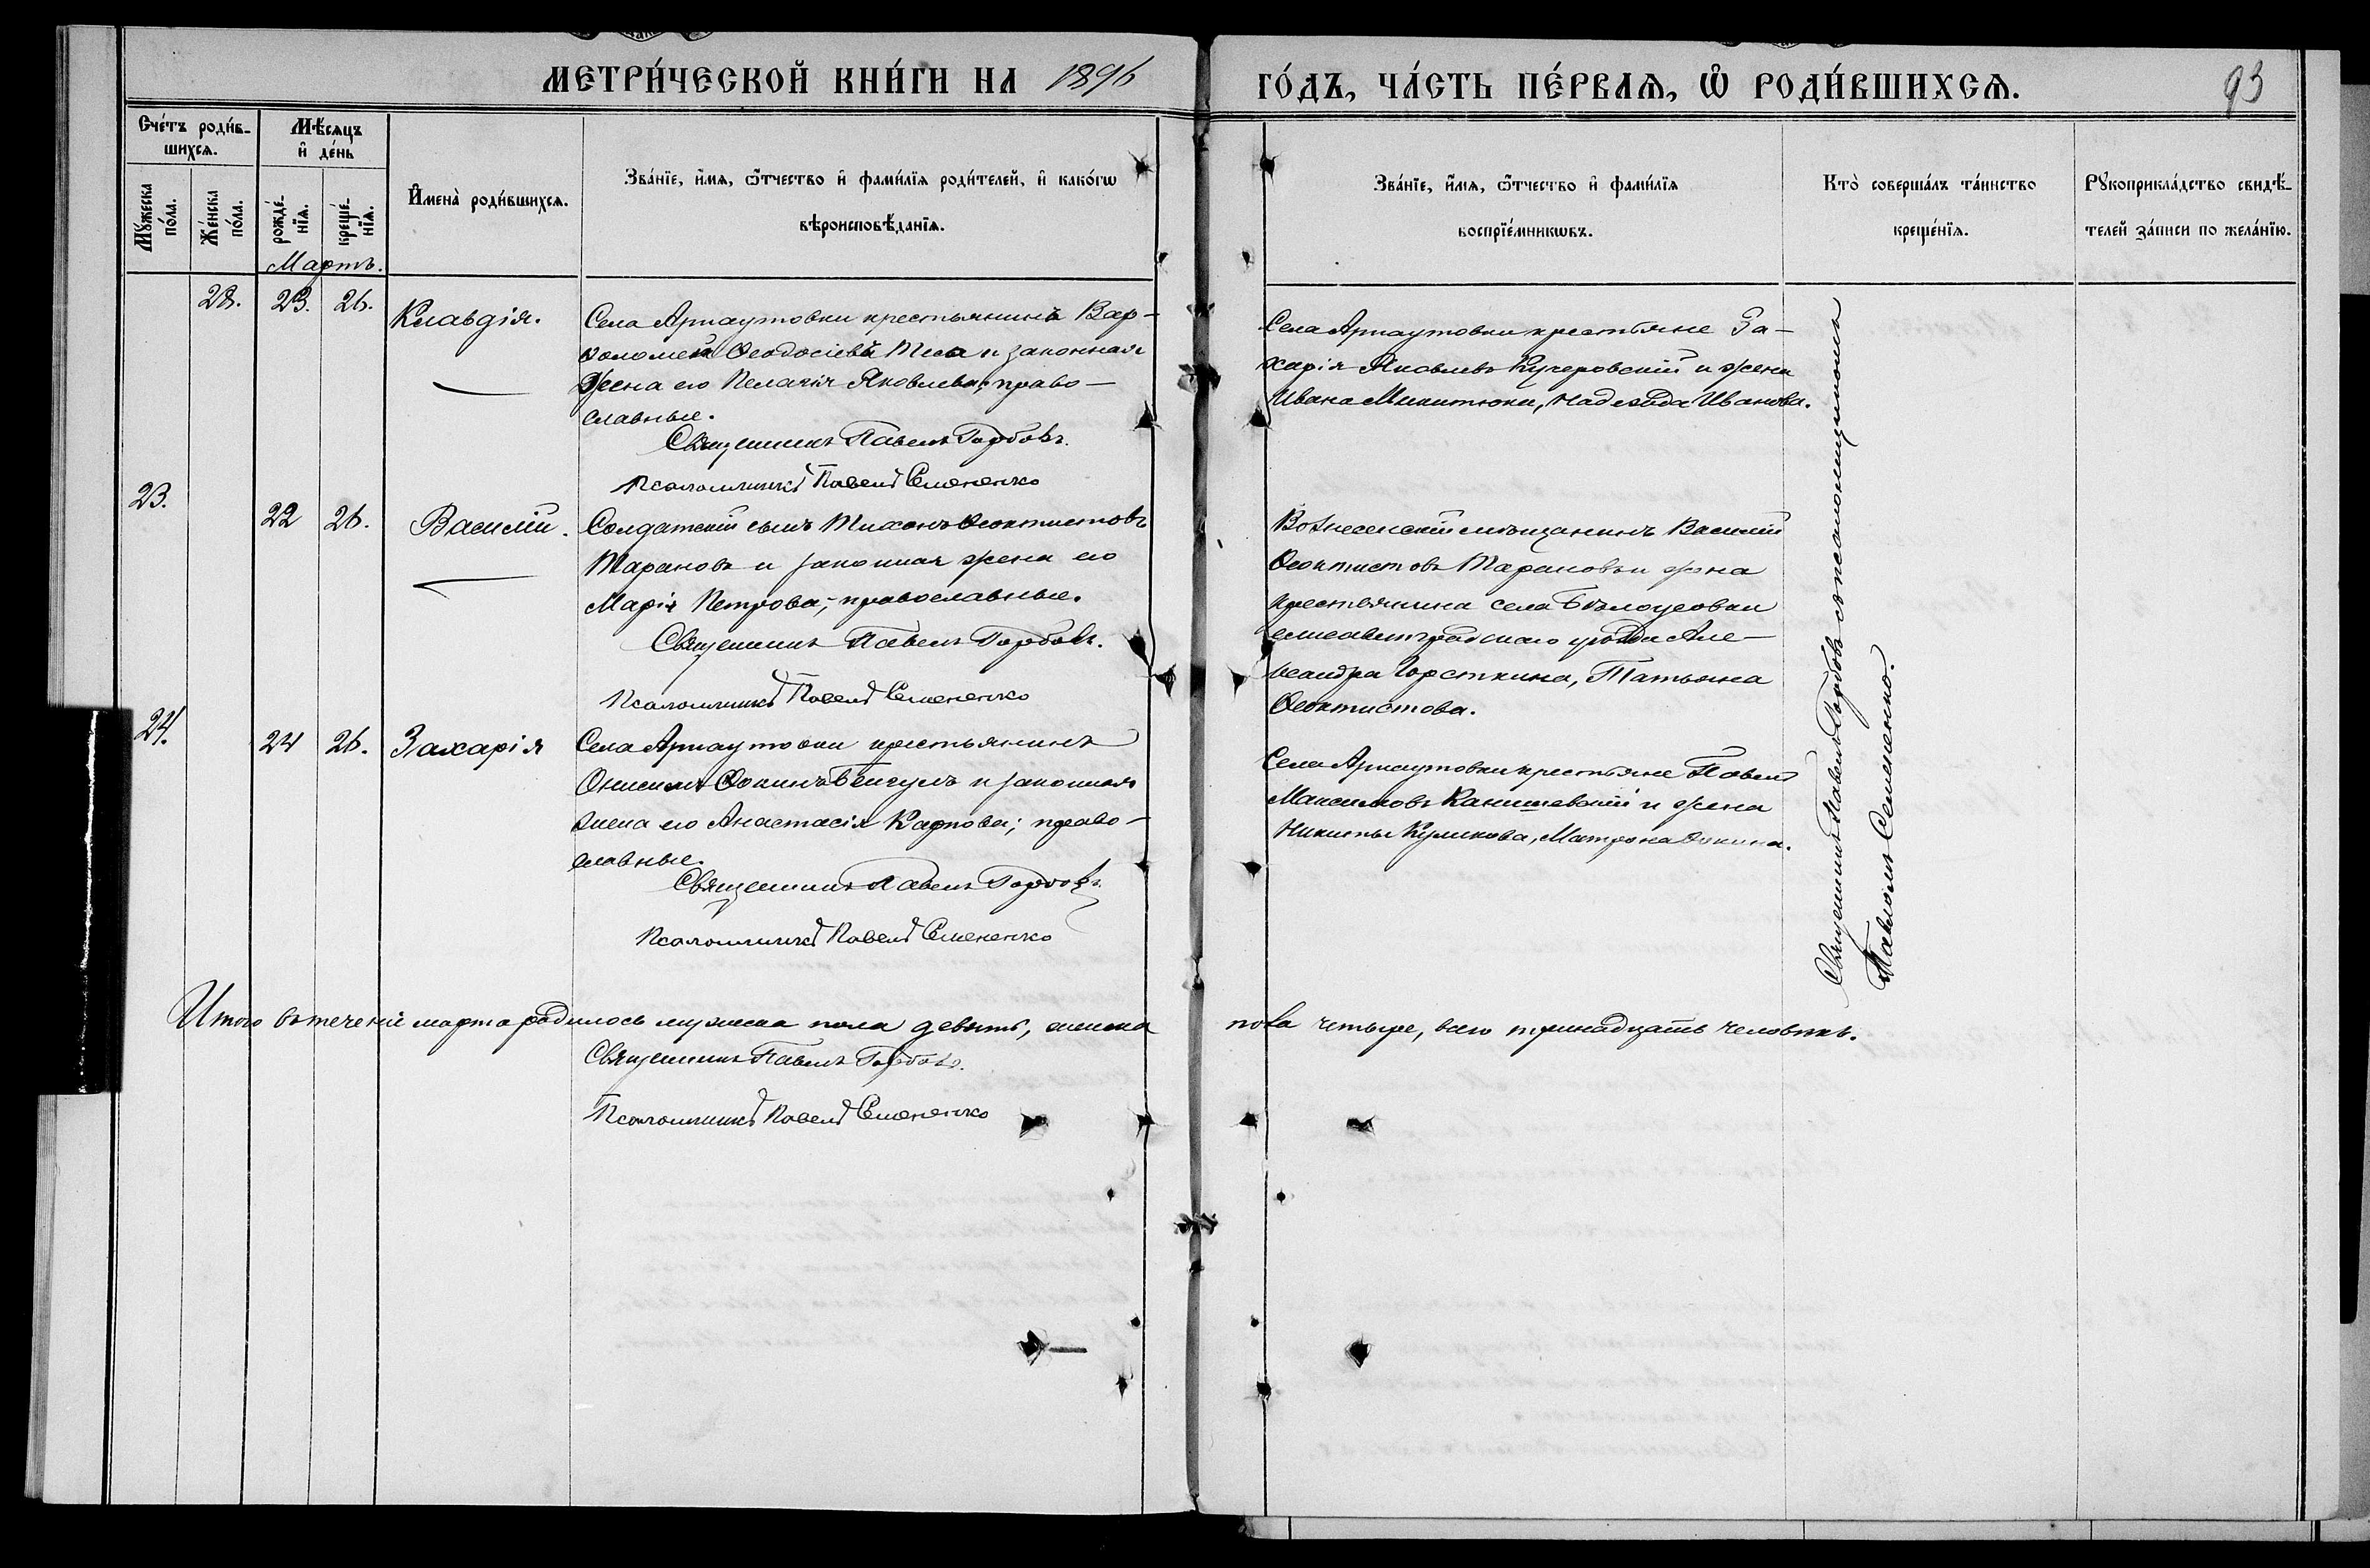 МЕТРИ́ЧЕСКОЙ КНИ́ГИ НА 1896 ГО́ДЪ, ЧА́СТЬ ПЕ́РВАЯ, Ѡ҆ РОДИ́ВШИХСЯ.
93
Сче́тъ роди́в-
шихся.
Мѣ́сяцъ
и҆ де́нь
Мꙋ́жеска
по́ла.
Же́нска
по́ла.
рожде́-
нїя.
креще́-
нїя.
И҆мена̀ роди́вшихся.
Зва́нїе, и҆́мя, ѻ҆́тчество и҆ фами́лїя роди́телей, и҆ како́гѡ
вѣроисповѣ́данїя.
Зва́нїе, и҆́мя, ѻ҆́тчество и҆ фами́лїя
воспрїе́мникѡвъ.
Кто̀ соверша́лъ та́инство
креще́нїя.
Рꙋкоприкла́дство свидѣ́-
телей за́писи по жела́нїю.
Мартъ.
28. 23. 26.
Клавдія.
Села Арнаутовки крестьянинъ Вар-
ѳоломей Ѳеодосіевъ и законная
жена его Пелагія Яковлева; право-
славные.
Священникъ Павелъ Горбовъ.
Псаломщикъ Павелъ Семененко
Села Арнаутовки крестьяне За-
харія Яковлевъ Кучеровскій и жена
Ивана Микитюка, Надежда Иванова.
23. 22 26.
Василій.
Солдатскій сынъ Тихонъ Ѳеоктистовъ
Тарановъ и законная жена его
Марія Петрова; православные.
Священникъ Павелъ Горбовъ.
Псаломщикъ Павелъ Семененко
Вознесенскій мѣщанинъ Василій
Ѳеоктистовъ Тарановъ и жена
крестьянина села Бѣлоусовки
елисаветградскаго уѣзда Але-
ксандра Горсткина, Татьяна
Ѳеоктистова.
24. 24 26.
Захарія
Села Арнаутовки крестьянинъ
Онисимъ Ѳокинъ и законная
жена его Анастасія Карпова; право-
славные.
Священникъ Павелъ Горбовъ
Псаломщикъ Павелъ Семененко
Села Арнаутовки крестьяне Павелъ
Максимовъ Канишевскій и жена
Никиты Куликова, Матрона Ѳокина.
Священникъ Павелъ Горбовъ съ псаломщикомъ
Павломъ Семененко.
Итого въ теченіе марта родилось мужеска пола девять, женска пола четыре, всего тринадцать человѣкъ.
Священникъ Павелъ Горбовъ.
Псаломщикъ Павелъ Семененко